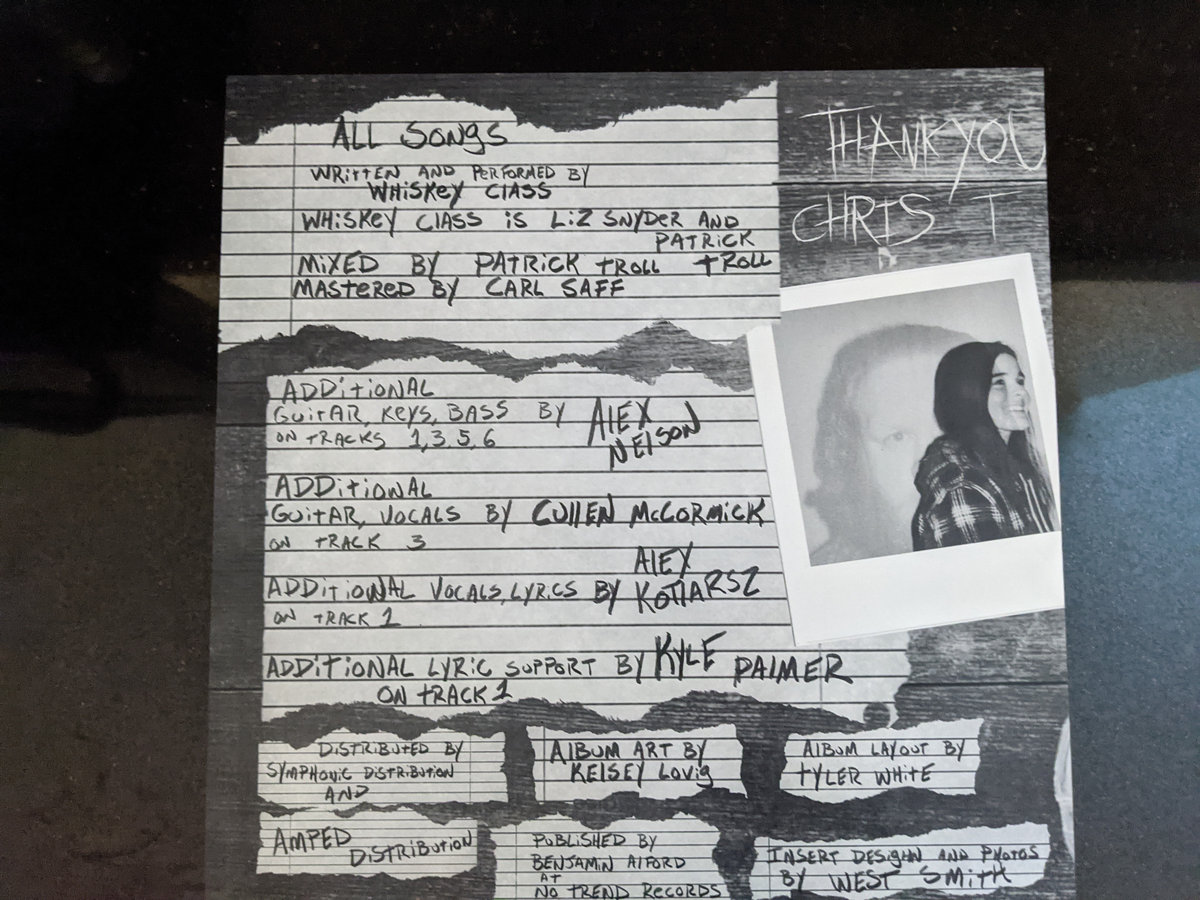 ALL SONGS
WRITTEN AND PERFORMED BY
WHISKEY CLASS
WHISKEY CLASS IS LIZ SNYDER AND
PATRICK
TROLL
MIXED BY PATRICK TROLL
MASTERED BY CARL SAFF
THANK YOU
CHRIS T
ADDITIONAL
GUITAR, KEYS, BASS BY ALEX
NELSON
ON TRACKS 1, 3, 5, 6
ADDITIONAL
GUITAR, VOCALS BY CULLEN McCORMICK
ON TRACK 3
ADDITIONAL VOCALS, LYRICS BY ALEX
KOTLARSZ
ON TRACK 1
ADDITIONAL LYRIC SUPPORT BY KYLE PALMER
ON TRACK 1
DISTRIBUTED BY
SYMPHONIC DISTRIBUTION
AND
AMPED
DISTRIBUTION
ALBUM ART BY
KELSEY LOVIG
ALBUM LAYOUT BY
TYLER WHITE
PUBLISHED BY
BENJAMIN ALFORD
AT
NO TREND RECORDS
INSERT DESIGHN AND PHOTOS
BY WEST SMITH